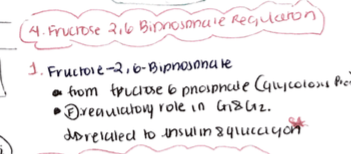 4. Fructose 2,6 Bipnosonate Regulation
1. Fructose-2,6-Bipnosonate
• from fructose 6 pnosphate (glycolosis
• Ⓕ regulatory role in G1&G2.
related to insulin & glucagon*